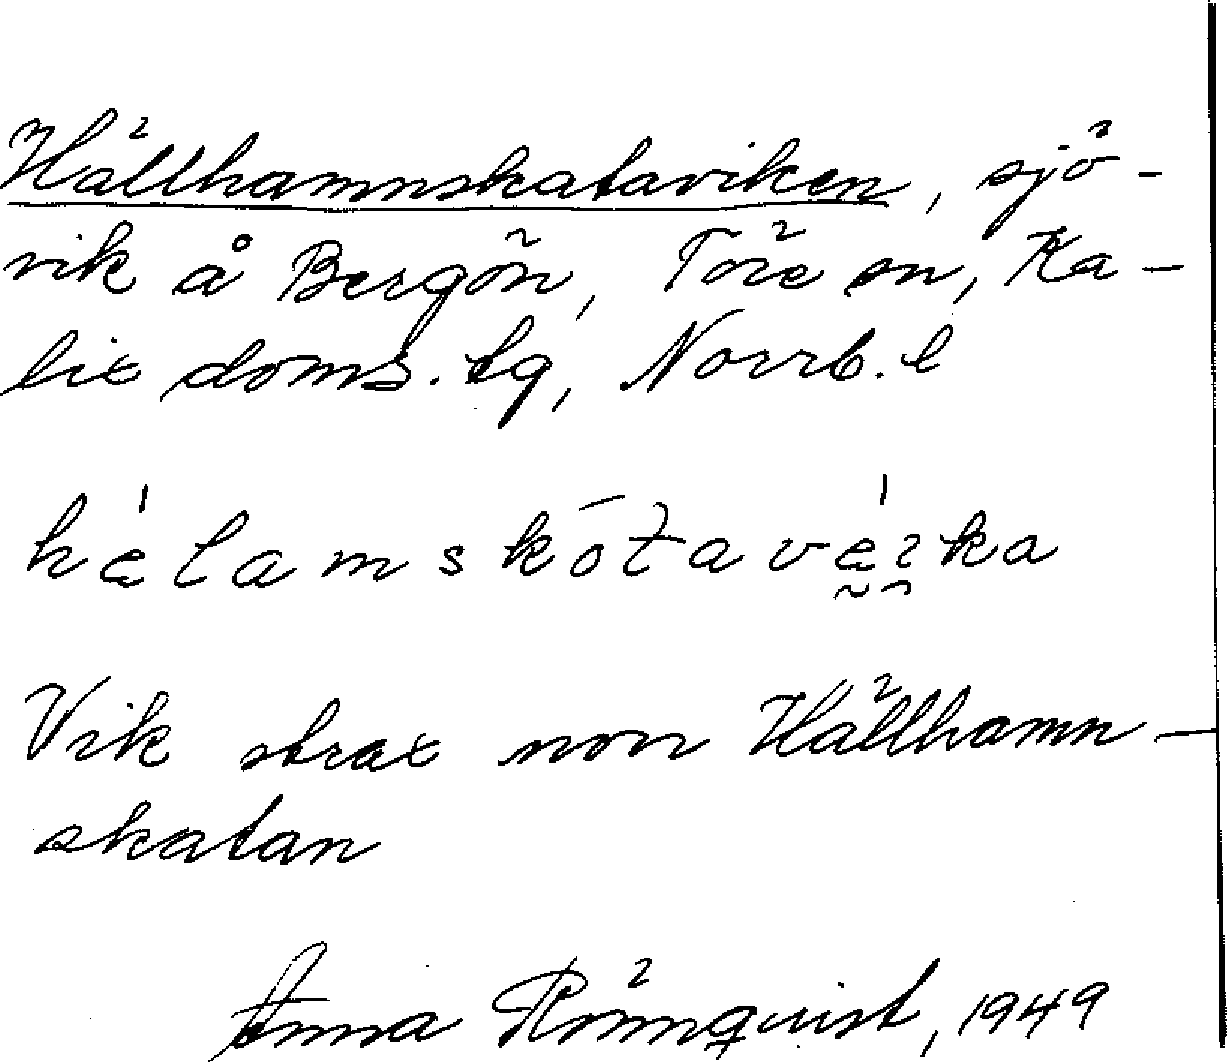 Hällhamnskataviken, sjö-
vik å Bergön, Töre sn, Ka-
lix doms. tg, Norrb. l
Vik strax norr Hällhamn-
skatan
Anna Rönnquist, 1949